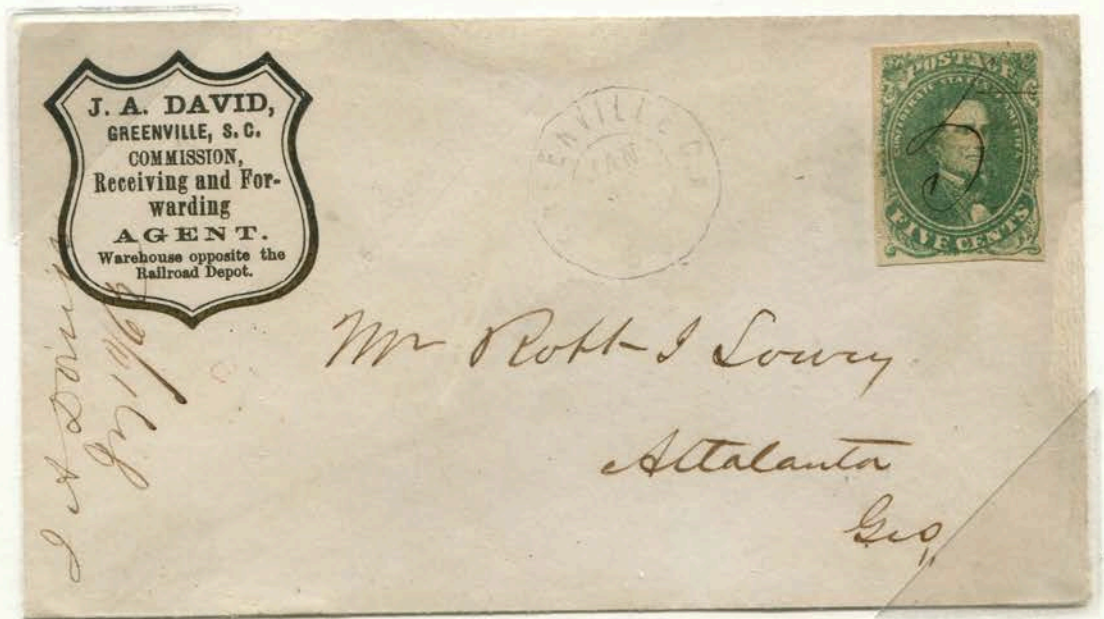 J. A. DAVID,
GREENVILLE, S. C.
COMMISSION,
Receiving and For-
warding
AGENT.
Warehouse opposite the
Railroad Depot.
ENVILLE C.H
JAN
POSTAGE
CONFEDERATE STATES OF AMERICA
5
FIVE CENTS
Mr Robt I Lowry
Attalanta
Geo
J A